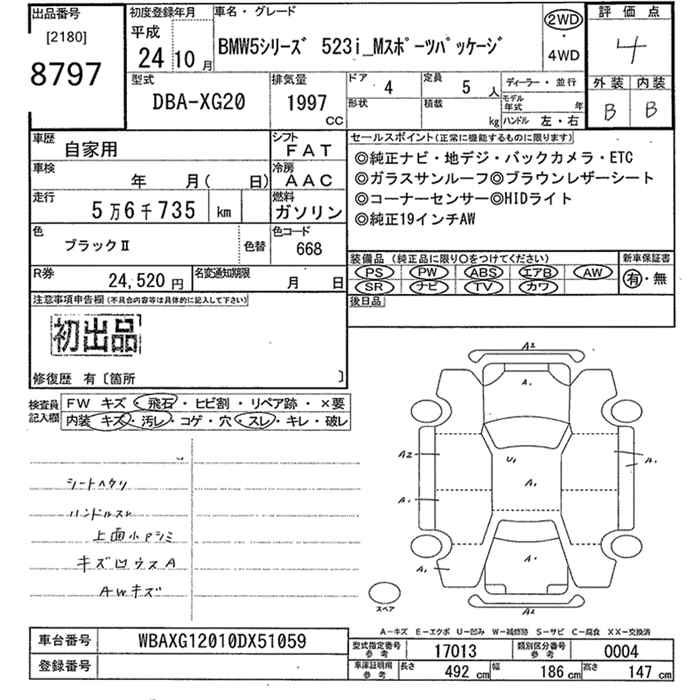 出品番号 初度登録年月 車名・グレード 評価点
[2180] 平成 24年10月 BMW5シリーズ 523i_Mスポーツパッケージ 2WD・4WD 4
8797
型式 排気量 ドア 4 定員 5人 ディーラー・並行 外装 内装
DBA-XG20 1997CC 形状 積載 kg モデル年式 年 B B
ハンドル 左・右
車歴 自家用 シフト FAT セールスポイント(正常に機能するものに限ります)
車検 年 月( 日) 冷房 AAC ◎純正ナビ・地デジ・バックカメラ・ETC
走行 5万6千735 km 燃料 ガソリン ◎ガラスサンルーフ◎ブラウンレザーシート
◎コーナーセンサー◎HIDライト
色 ブラックⅡ 色替 色コード 668 ◎純正19インチAW
装備品(純正品に限り○をつけてください) 新車保証書
R券 24,520円 名変通知期限 月 日 PS PW ABS エアB AW 有・無
SR ナビ TV カワ
注意事項申告欄(不具合内容等は具体的に記入して下さい) 後日品
初出品
修復歴 有〔箇所 〕
検査員記入欄 FW キズ・飛石・ヒビ割・リペア跡・×要
内装 キズ・汚レ・コゲ・穴・スレ・キレ・破レ
A2
A1
シートヘタリ
ハンドルスレ
上面小Pシミ
キズ凹ウスA
AWキズ
A2 U1 A1 A1
A1 A1
A1 A1
スペア A2
A-キズ E-エクボ U-凹み W-補修跡 S-サビ C-腐食 XX-交換済
車台番号 WBAXG12010DX51059 型式指定番号参考 17013 類別区分番号参考 0004
登録番号 車庫証明用参考 長さ 492cm 幅 186cm 高さ 147cm